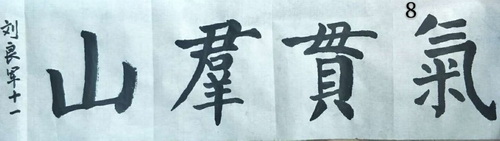 8
氣貫羣山
刘良军十一